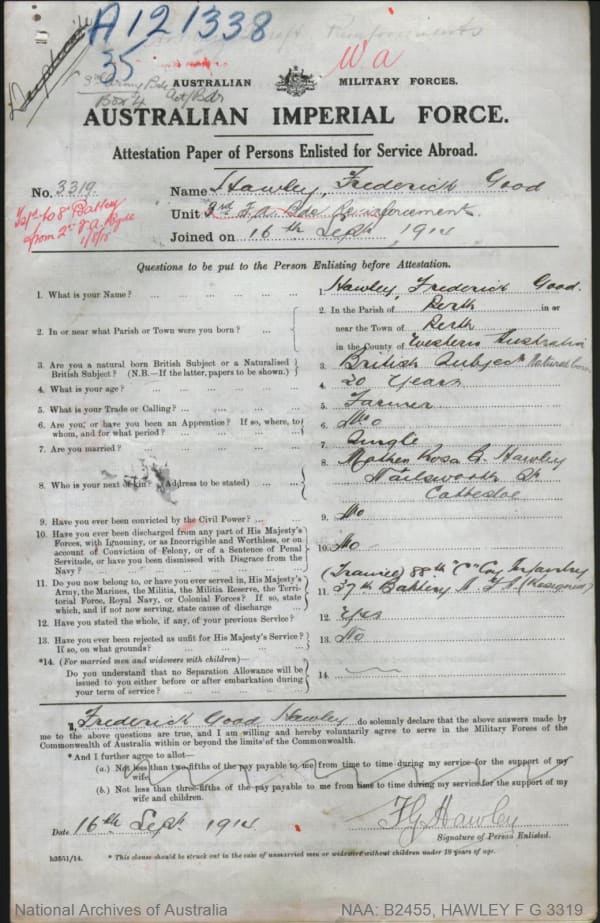 A121338
35
W a
3rd Army Bde
Box 4
AUSTRALIAN MILITARY FORCES.
AUSTRALIAN IMPERIAL FORCE.
Attestation Paper of Persons Enlisted for Service Abroad.
No. 3319 Name Hawley, Frederick Good
Unit 3rd F.A. Bde Reinforcement.
Joined on 16th Sept 1914
Questions to be put to the Person Enlisting before Attestation.
1. What is your Name? ... 1. Hawley, Frederick Good.
2. In or near what Parish or Town were you born? ... 2. In the Parish of Perth in or
near the Town of Perth
in the County of Western Australia
3. Are you a natural born British Subject or a Naturalised British Subject? (N.B.—If the latter, papers to be shown.) 3. British Subject Natural born
4. What is your age? ... 4. 20 Years
5. What is your Trade or Calling? ... 5. Farmer
6. Are you, or have you been an Apprentice? If so, where, to whom, and for what period? ... 6. No
7. Are you married? ... 7. Single
8. Who is your next of kin? (Address to be stated) ... 8. Mother Rosa G. Hawley
Nailsworth St
Cottesloe
9. Have you ever been convicted by the Civil Power? ... 9. No
10. Have you ever been discharged from any part of His Majesty's Forces, with Ignominy, or as Incorrigible and Worthless, or on account of Conviction of Felony, or of a Sentence of Penal Servitude, or have you been dismissed with Disgrace from the Navy? ... 10. No
11. Do you now belong to, or have you ever served in, His Majesty's Army, the Marines, the Militia, the Militia Reserve, the Territorial Force, Royal Navy, or Colonial Forces? If so, state which, and if not now serving, state cause of discharge 11. (Trainee) 88th "C" Coy Infantry
37th Battery A F A (Resigned)
12. Have you stated the whole, if any, of your previous Service? 12. Yes
13. Have you ever been rejected as unfit for His Majesty's Service? If so, on what grounds? ... 13. No
*14. (For married men and widowers with children)—
Do you understand that no Separation Allowance will be issued to you either before or after embarkation during your term of service? ... 14.
I, Frederick Good Hawley do solemnly declare that the above answers made by
me to the above questions are true, and I am willing and hereby voluntarily agree to serve in the Military Forces of the
Commonwealth of Australia within or beyond the limits of the Commonwealth.
* And I further agree to allot—
(a.) Not less than two-fifths of the pay payable to me from time to time during my service for the support of my
wife
(b.) Not less than three-fifths of the pay payable to me from time to time during my service for the support of my
wife and children.
Date 16th Sept. 1914 F G Hawley
Signature of Person Enlisted.
* This clause should be struck out in the case of unmarried men or widowers without children under 18 years of age.
National Archives of Australia NAA: B2455, HAWLEY F G 3319